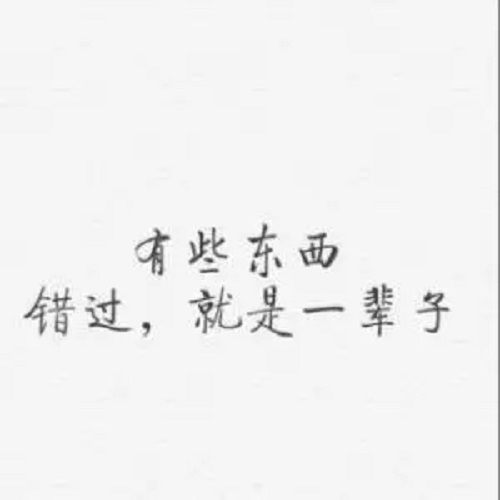 有些东西
错过，就是一辈子